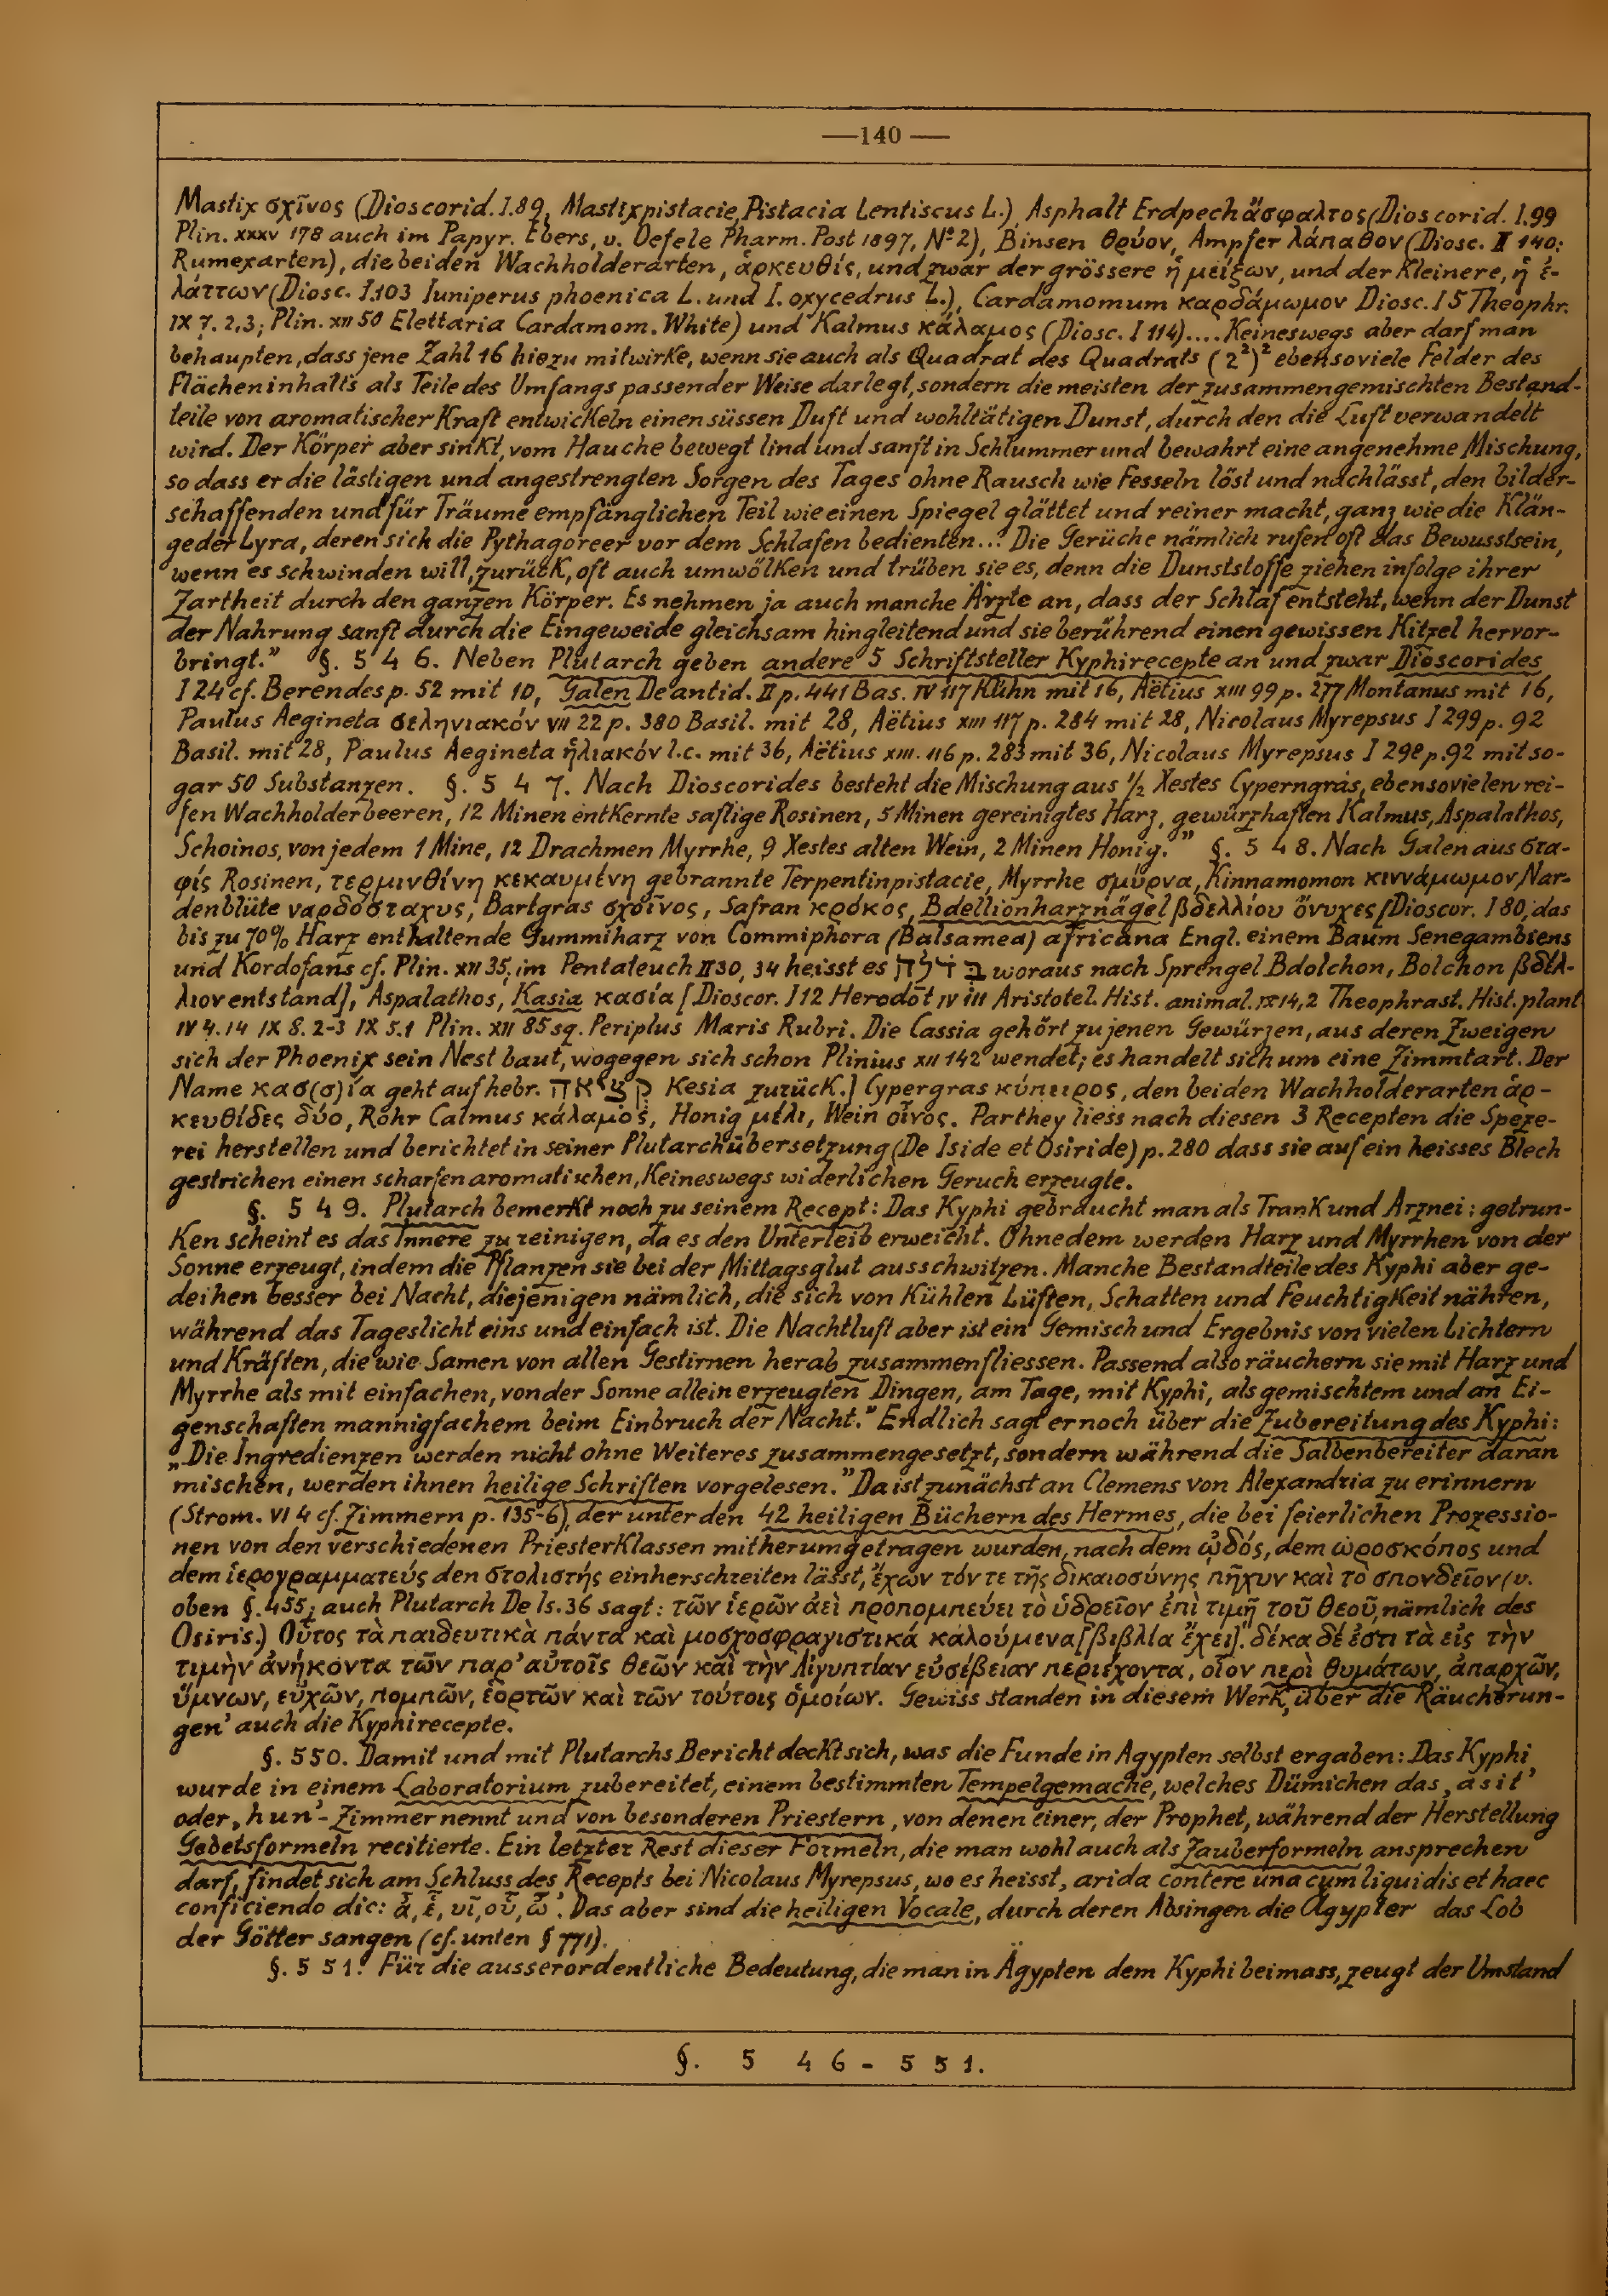 —140—
Mastix σχῖνος (Dioscorid. I.89, Mastixpistacie, Pistacia Lentiscus L.), Asphalt Erdpech ἄσφαλτος (Dioscorid. I.99
Plin. XXXV 178 auch im Papyr. Ebers, v. Oefele Pharm. Post 1897, Nº 2), Binsen θρύον, Ampfer λάπαθον (Diosc. II 140:
Rumexarten), die beiden Wachholderarten, ἀρκευθίς, und zwar der grössere ἡ μείζων, und der Kleinere, ἡ ἐ-
λάττων (Diosc. I.103 Iuniperus phoenica L. und I. oxycedrus L.), Cardamomum καρδάμωμον Diosc. I 5 Theophr.
IX 7. 2,3; Plin. XII 50 Elettaria Cardamom. White) und Kalmus κάλαμος (Diosc. I 114).... Keineswegs aber darf man
behaupten, dass jene Zahl 16 hiezu mitwirke, wenn sie auch als Quadrat des Quadrats (2²)² ebensoviele Felder des
Flächeninhalts als Teile des Umfangs passender Weise darlegt, sondern die meisten der zusammengemischten Bestand-
teile von aromatischer Kraft entwickeln einen süssen Duft und wohltätigen Dunst, durch den die Luft verwandelt
wird. Der Körper aber sinkt, vom Hauche bewegt lind und sanft in Schlummer und bewahrt eine angenehme Mischung,
so dass er die lästigen und angestrengten Sorgen des Tages ohne Rausch wie Fesseln löst und nachlässt, den bilder-
schaffenden und für Träume empfänglichen Teil wie einen Spiegel glättet und reiner macht, ganz wie die Klän-
ge der Lyra, deren sich die Pythagoreer vor dem Schlafen bedienten... Die Gerüche nämlich rufen oft das Bewusstsein,
wenn es schwinden will, zurück, oft auch umwölken und trüben sie es, denn die Dunststoffe ziehen infolge ihrer
Zartheit durch den ganzen Körper. Es nehmen ja auch manche Ärzte an, dass der Schlaf entsteht, wenn der Dunst
der Nahrung sanft durch die Eingeweide gleichsam hingleitend und sie berührend einen gewissen Kitzel hervor-
bringt.” §. 5 4 6. Neben Plutarch geben andere 5 Schriftsteller Kyphirecepte an und zwar Dioscorides
I 24 cf. Berendes p. 52 mit 10, Galen De antid. II p. 441 Bas. IV 117 Kühn mit 16, Aëtius XIII 99 p. 277 Montanus mit 16,
Paulus Aegineta σεληνιακόν VII 22 p. 380 Basil. mit 28, Aëtius XIII 117 p. 284 mit 28, Nicolaus Myrepsus I 299 p. 92
Basil. mit 28, Paulus Aegineta ἡλιακόν l.c. mit 36, Aëtius XIII. 116 p. 283 mit 36, Nicolaus Myrepsus I 298 p. 92 mit so-
gar 50 Substanzen. §. 5 4 7. Nach Dioscorides besteht die Mischung aus 1/2 Xestes Cyperngras, ebensovielen rei-
fen Wachholderbeeren, 12 Minen entkernte saftige Rosinen, 5 Minen gereinigtes Harz, gewürzhaften Kalmus, Aspalathos,
Schoinos, von jedem 1 Mine, 12 Drachmen Myrrhe, 9 Xestes alten Wein, 2 Minen Honig.” §. 5 4 8. Nach Galen aus στα-
φίς Rosinen, τερμινθίνη κεκαυμένη gebrannte Terpentinpistacie, Myrrhe σμύρνα, Kinnamomon κιννάμωμον, Nar-
denblüte ναρδόσταχυς, Bartgras σχοῖνος, Safran κρόκος, Bdellionharznägel βδελλίου ὄνυχες [Dioscor. I 80, das
bis zu 70% Harz enthaltende Gummiharz von Commiphora (Balsamea) africana Engl. einem Baum Senegambiens
und Kordofans cf. Plin. XII 35; im Pentateuch II 30, 34 heisst es בדלה woraus nach Sprengel Bdolchon, Bolchon βδέλ-
λιον entstand], Aspalathos, Kasia κασία [Dioscor. I 12 Herodot IV 111 Aristotel. Hist. animal. IX 14,2 Theophrast. Hist. plant
IV 4. 14 IX 8. 2-3 IX 5.1 Plin. XII 85 sq. Periplus Maris Rubri. Die Cassia gehört zu jenen Gewürzen, aus deren Zweigen
sich der Phoenix sein Nest baut, wogegen sich schon Plinius XII 142 wendet; es handelt sich um eine Zimmtart. Der
Name κασ(σ)ία geht auf hebr. קצאה Kesia zurück.] Cypergras κύπειρος, den beiden Wachholderarten ἀρ-
κευθίδες δύο, Rohr Calmus κάλαμος, Honig μέλι, Wein οἶνος. Parthey liess nach diesen 3 Recepten die Speze-
rei herstellen und berichtet in seiner Plutarchübersetzung (De Iside et Osiride) p. 280 dass sie auf ein heisses Blech
gestrichen einen scharfen aromatischen, keineswegs widerlichen Geruch erzeugte.
§. 5 4 9. Plutarch bemerkt noch zu seinem Recept: Das Kyphi gebraucht man als Trank und Arznei; getrun-
ken scheint es das Innere zu reinigen, da es den Unterleib erweicht. Ohnedem werden Harz und Myrrhen von der
Sonne erzeugt, indem die Pflanzen sie bei der Mittagsglut ausschwitzen. Manche Bestandteile des Kyphi aber ge-
deihen besser bei Nacht, diejenigen nämlich, die sich von kühlen Lüften, Schatten und Feuchtigkeit nähren,
während das Tageslicht eins und einfach ist. Die Nachtluft aber ist ein Gemisch und Ergebnis von vielen Lichtern
und Kräften, die wie Samen von allen Gestirnen herab zusammenfliessen. Passend also räuchern sie mit Harz und
Myrrhe als mit einfachen, von der Sonne allein erzeugten Dingen, am Tage, mit Kyphi, als gemischtem und an Ei-
genschaften mannigfachem beim Einbruch der Nacht.” Endlich sagt er noch über die Zubereitung des Kyphi:
„Die Ingredienzen werden nicht ohne Weiteres zusammengesetzt, sondern während die Salbenbereiter daran
mischen, werden ihnen heilige Schriften vorgelesen.” Da ist zunächst an Clemens von Alexandria zu erinnern
(Strom. VI 4 cf. Zimmern p. 135-6), der unter den 42 heiligen Büchern des Hermes, die bei feierlichen Prozessio-
nen von den verschiedenen Priesterklassen mitherumgetragen wurden, nach dem ᾠδός, dem ὡροσκόπος und
dem ἱερογραμματεύς den στολιστής einherschreiten lässt, ἔχων τόν τε τῆς δικαιοσύνης πῆχυν καὶ τὸ σπονδεῖον (v.
oben §. 455; auch Plutarch De Is. 36 sagt: τῶν ἱερῶν ἀεὶ προπομπεύει τὸ ὑδρεῖον ἐπὶ τιμῇ τοῦ θεοῦ, nämlich des
Osiris.) Οὗτος τὰ παιδευτικὰ πάντα καὶ μοσχοσφραγιστικά καλούμενα [βιβλία ἔχει]. δέκα δέ ἐστι τὰ εἰς τὴν
τιμὴν ἀνήκοντα τῶν παρ’ αὐτοῖς θεῶν καὶ τὴν Αἰγυπτίαν εὐσέβειαν περιέχοντα, οἷον περὶ θυμάτων, ἀπαρχῶν,
ὕμνων, εὐχῶν, πομπῶν, ἑορτῶν καὶ τῶν τούτοις ὁμοίων. Gewiss standen in diesem Werk ‚über die Räucherun-
gen’ auch die Kyphirecepte.
§. 550. Damit und mit Plutarchs Bericht deckt sich, was die Funde in Ägypten selbst ergaben: Das Kyphi
wurde in einem Laboratorium zubereitet, einem bestimmten Tempelgemache, welches Dümichen das ‚asit’
oder ‚hun’-Zimmer nennt und von besonderen Priestern, von denen einer, der Prophet, während der Herstellung
Gebetsformeln recitierte. Ein letzter Rest dieser Formeln, die man wohl auch als Zauberformeln ansprechen
darf, findet sich am Schluss des Recepts bei Nicolaus Myrepsus, wo es heisst, arida contere una cum liquidis et haec
conficiendo dic: ἆ, ἒ, υῖ, οὖ, ὦ’. Das aber sind die heiligen Vocale, durch deren Absingen die Ägypter das Lob
der Götter sangen (cf. unten § 771).
§. 5 5 1. Für die ausserordentliche Bedeutung, die man in Ägypten dem Kyphi beimass, zeugt der Umstand
§. 5 4 6 - 5 5 1.